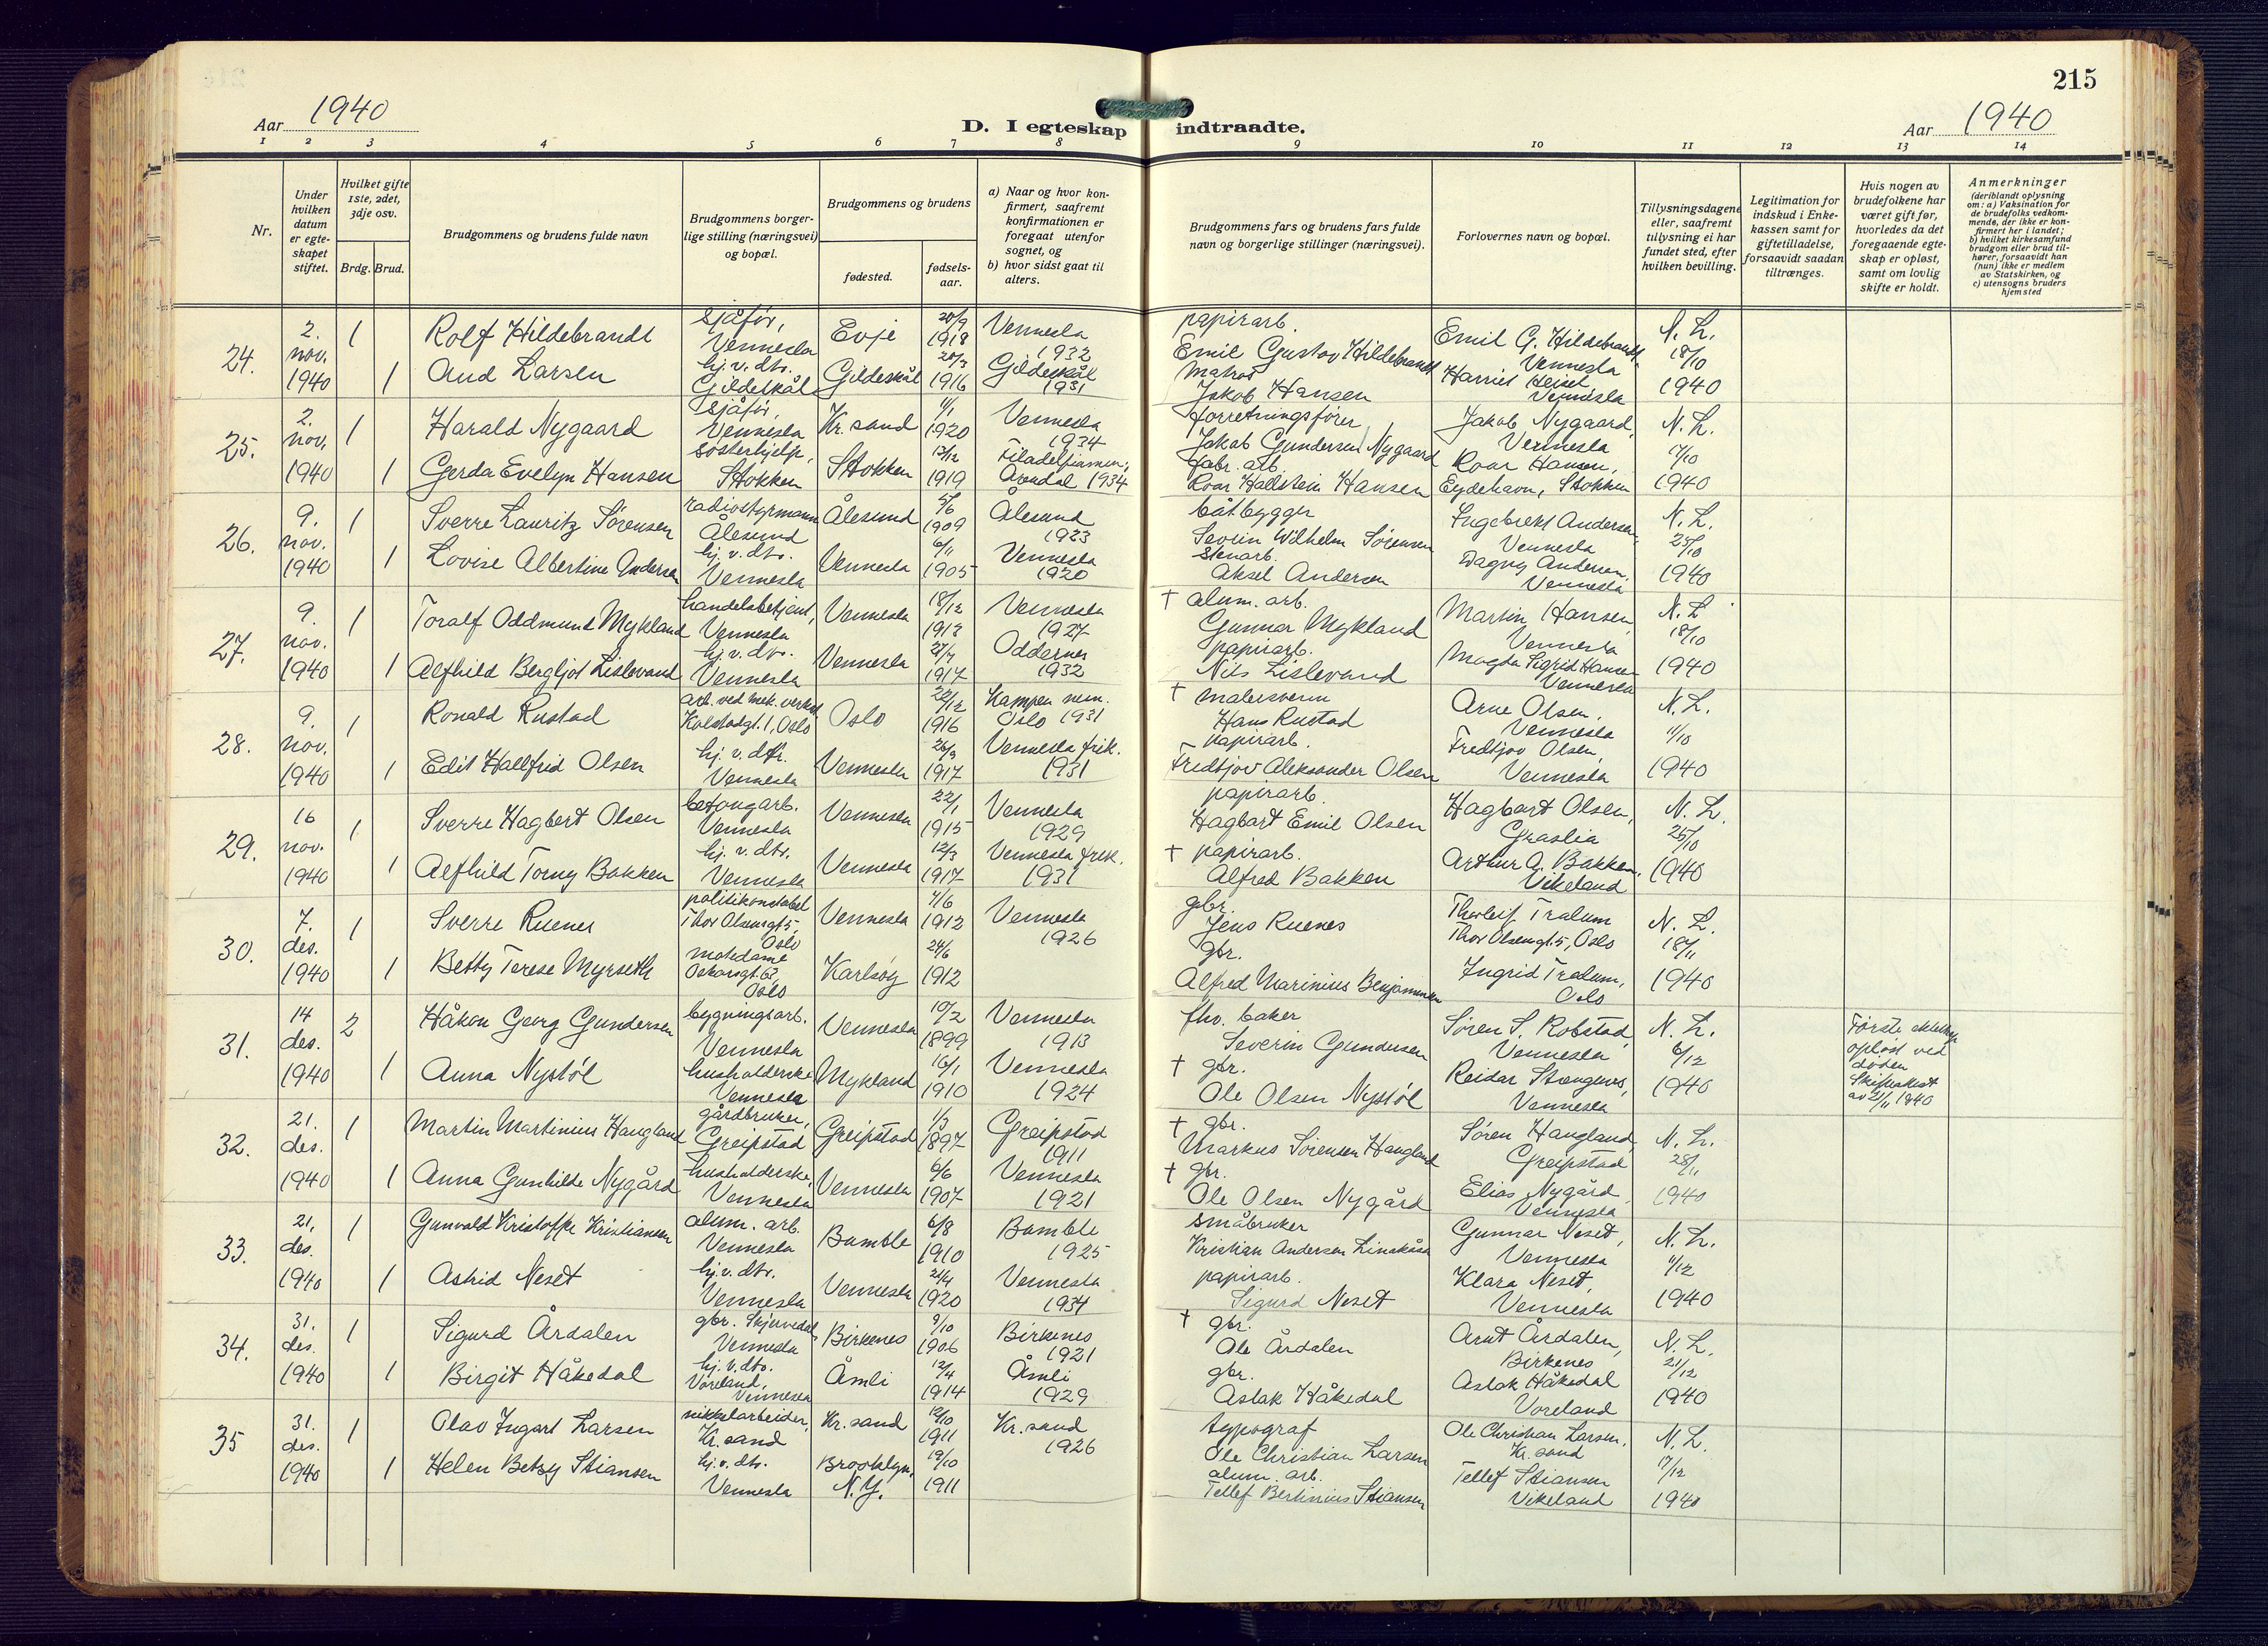 215
Aar 1940
D. I egteskap indtraadte.
Aar 1940
1 2 3 4 5 6 7 8 9 10 11 12 13 14
Nr.
Under hvilken datum er egteskapet stiftet.
Hvilket gifte 1ste, 2det, 3dje osv.
Brdg. Brud.
Brudgommens og brudens fulde navn
Brudgommens borgerlige stilling (næringsvei) og bopæl.
Brudgommens og brudens
fødested.
fødselsaar.
a) Naar og hvor konfirmert, saafremt konfirmationen er foregaat utenfor sognet, og
b) hvor sidst gaat til alters.
Brudgommens fars og brudens fars fulde navn og borgerlige stillinger (næringsvei).
Forlovernes navn og bopæl.
Tillysningsdagene eller, saafremt tillysning ei har fundet sted, efter hvilken bevilling.
Legitimation for indskud i Enkekassen samt for giftetilladelse, forsaavidt saadan tiltrænges.
Hvis nogen av brudefolkene har været gift før, hvorledes da det foregaaende egteskap er opløst, samt om lovlig skifte er holdt.
Anmerkninger
(deriblandt oplysning om: a) Vaksination for de brudefolks vedkommende, der ikke er konfirmert her i landet;
b) hvilket kirkesamfund brudgom eller brud tilhører, forsaavidt han (hun) ikke er medlem av Statskirken, og
c) utensogns bruders hjemsted
24. 2. nov. 1940 1 Rolf Hildebrandt sjåfør, Vennesla Evje 20/9 1918 Vennesla 1932 papirarb. Emil Gustav Hildebrandt Emil G. Hildebrandt Vennesla N. L. 18/10 1940
1 Aud Larsen hj. v. dtr. Gildeskål Gildeskål 20/3 1916 Gildeskål 1931 Matros Jakob Hansen Harriet Vennesla
25. 2. nov. 1940 1 Harald Nygaard sjåfør, Vennesla Kr. sand 11/1 1920 Vennesla 1934 forretningsfører Jakob Gundersen Nygaard Jakob Nygaard, Vennesla N. L. 17/10 1940
1 Gerda Evelyn Hansen søsterhjelp, Stokken Stokken 13/12 1919 Arendal 1934 fabr. arb. Roar Hallstein Hansen Roar Hansen, Eydehavn, Stokken
26. 9. nov. 1940 1 Sverre Lauritz Sørensen radiostyrmann Ålesund Ålesund 5/6 1909 Ålesund 1923 båtbygger Severin Wilhelm Sørensen Ingebrekt Andersen Vennesla N. L. 25/10 1940
1 Lovise Albertine Andersen hj. v. dtr. Vennesla Vennesla 6/11 1905 Vennesla 1920 stenarb. Aksel Andersen Dagny Andersen, Vennesla
27. 9. nov. 1940 1 Toralf Oddmund Mykland handelsbetjent, Vennesla Vennesla 18/12 1913 Vennesla 1927 † alum. arb. Gunnar Mykland Martin Hansen, Vennesla N. L. 18/10 1940
1 Alfhild Bergljot Lislevand hj. v. dtr. Vennesla Vennesla 1917 Oddernes 1932 papirarb. Nils Lislevand Magda Sigrid Hansen Vennesla
28. 9. nov. 1940 1 Ronald Rustad arb. ved mek. verkst. Kolstadgt. 1, Oslo Oslo 22/12 1916 Kampen men. Oslo 1931 † malersvenn Hans Rustad Arne Olsen, Vennesla N. L. 11/10 1940
1 Edit Hallfrid Olsen hj. v. dtr. Vennesla Vennesla 26/3 1917 Vennesla frik. 1931 papirarb. Fredtjov Aleksander Olsen Fredtjov Olsen, Vennesla
29. 16 nov. 1940 1 Sverre Hagbert Olsen betongarb. Vennesla Vennesla 22/1 1915 Vennesla 1929 papirarb. Hagbart Emil Olsen Hagbart Olsen, Graslia N. L. 25/10 1940
1 Alfhild Torny Bakken hj. v. dtr. Vennesla Vennesla 12/3 1917 Vennesla frik. 1931 † papirarb. Alfred Bakken Arthur A. Bakken, Vikeland
30. 7. des. 1940 1 Sverre Ruenes politikonstabel Thor Olsensgt 5, Oslo Vennesla 1/6 1912 Vennesla 1926 gbr. Jens Ruenes Thorleif Tralum Thor Olsengt. 5, Oslo N. L. 18/11 1940
1 Betty Terese Myrseth motedame Oskarsgt. 62, Oslo Karlsøy 24/6 1912 gbr. Alfred Marinius Benjaminsen Ingrid Tralum, Oslo
31. 14 des. 1940 2 Håkon Georg Gundersen bygningsarb. Vennesla Vennesla 10/2 1899 Vennesla 1913 fhv. baker Severin Gundersen Søren S. Robstad, Vennesla N. L. 6/12 1940 Første ekteskap opløst ved døden Skifteakt av 21/11 1940
1 Anna Nystøl husholderske Vennesla Mykland 16/1 1910 Vennesla 1924 † gbr. Ole Olsen Nystøl Reidar Stangenes, Vennesla
32. 21. des. 1940 1 Martin Martinius Haugland gårdbruker, Greipstad Greipstad 1/3 1897 Greipstad 1911 † gbr. Markus Sørensen Haugland Søren Haugland, Greipstad N. L. 28/11 1940
1 Anna Gunhilde Nygård husholderske, Vennesla Vennesla 6/6 1907 Vennesla 1921 † gbr. Ole Olsen Nygård Elias Nygård, Vennesla
33. 21. des. 1940 1 Gunvald Kristoffer Kristiansen alum. arb. Vennesla Bamble 6/8 1910 Bamble 1925 småbruker Kristian Andersen Gunnar Neset, Vennesla N. L. 11/12 1940
1 Astrid Neset hj. v. dtr. Vennesla Vennesla 21/4 1920 Vennesla 1934 papirarb. Sigurd Neset Klara Neset, Vennesla
34. 31. des. 1940 1 Sigurd Årdalen gbr. Skjervedal, Vennesla Birkenes 9/10 1906 Birkenes 1921 † gbr. Ole Årdalen Arnt Årdalen, Birkenes N. L. 21/12 1940
1 Birgit Håkedal hj. v. dtr. Voreland, Vennesla Åmli 12/4 1914 Åmli 1929 gbr. Aslak Håkedal Aslak Håkedal Voreland
35 31. des. 1940 1 Olav Ingart Larsen nikkelarbeider, Kr. sand Kr. sand 12/10 1911 Kr. sand 1926 typograf Ole Christian Larsen Ole Christian Larsen, Kr. sand N. L. 17/12 1940
1 Helen Betsy Stiansen hj. v. dtr. Vennesla Brooklyn, N.Y. 19/10 1911 alum. arb. Tellef Bertinius Stiansen Tellef Stiansen Vikeland